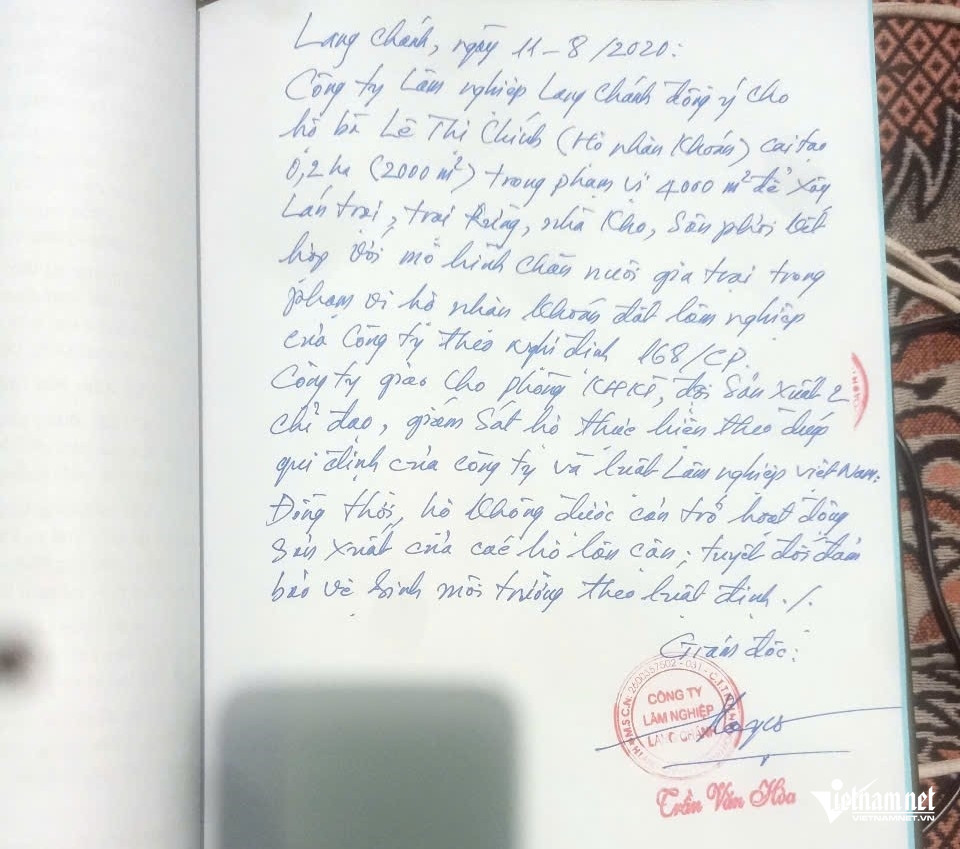 Lang Chánh, ngày 11-8/2020:
Công ty Lâm nghiệp Lang Chánh đồng ý cho
hộ bà Lê Thị Chính (Hộ nhận khoán) cải tạo
0,2 ha (2000 m²) trong phạm vi 4000 m² để xây
Lán trại, trại Rừng, nhà kho, sân phơi kết
hợp với mô hình chăn nuôi gia trại trong
phạm vi hộ nhận khoán đất lâm nghiệp
của Công ty theo nghị định 168/CP.
Công ty giao cho phòng KHKT, đội sản xuất 2
chỉ đạo, giám sát hộ thực hiện theo đúng
qui định của công ty và luật Lâm nghiệp Việt Nam.
Đồng thời, hộ không được cản trở hoạt động
sản xuất của các hộ lân cận; tuyệt đối đảm
bảo vệ sinh môi trường theo luật định./.
Giám đốc:
M.S C.N: 2600357502 - 031 - C.T.T.N.H.H
CÔNG TY
LÂM NGHIỆP
LANG CHÁNH
Trần Văn Hòa
vietnamnet
VIETNAMNET.VN